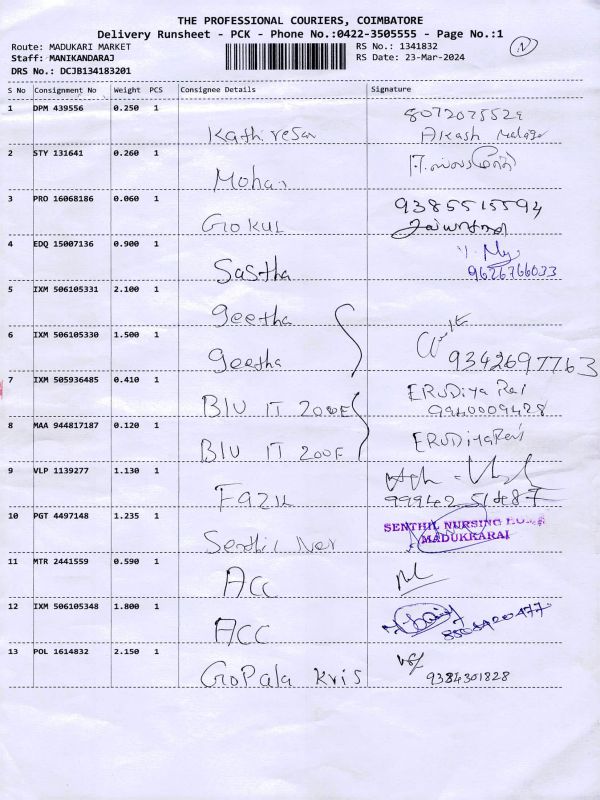 THE PROFESSIONAL COURIERS, COIMBATORE
Delivery Runsheet - PCK - Phone No.:0422-3505555 - Page No.:1
Route: MADUKARI MARKET
RS No.: 1341832
N
Staff: MANIKANDARAJ
RS Date: 23-Mar-2024
DRS No.: DCJB134183201
S No Consignment No Weight PCS Consignee Details Signature
1 DPM 439556 0.250 1
Kathiresan
Akash
2 STY 131641 0.260 1
Mohan
3 PRO 16068186 0.060 1
9385515594
GOKUL
4 EDQ 15007136 0.900 1
Sastha 9626766033
5 IXM 506105331 2.100 1
geetha
6 IXM 506105330 1.500 1
geetha 9342697763
7 IXM 505936485 0.410 1
BIU IT
9940009428
8 MAA 944817187 0.120 1
BIU IT
9 VLP 1139277 1.130 1
FAZIL
10 PGT 4497148 1.235 1
SENTHIL NURSING
MADUKKARAI
Senthil Ner
11 MTR 2441559 0.590 1
ACC
12 IXM 506105348 1.800 1
ACC
13 POL 1614832 2.150 1
GoPala Kris 9384301828